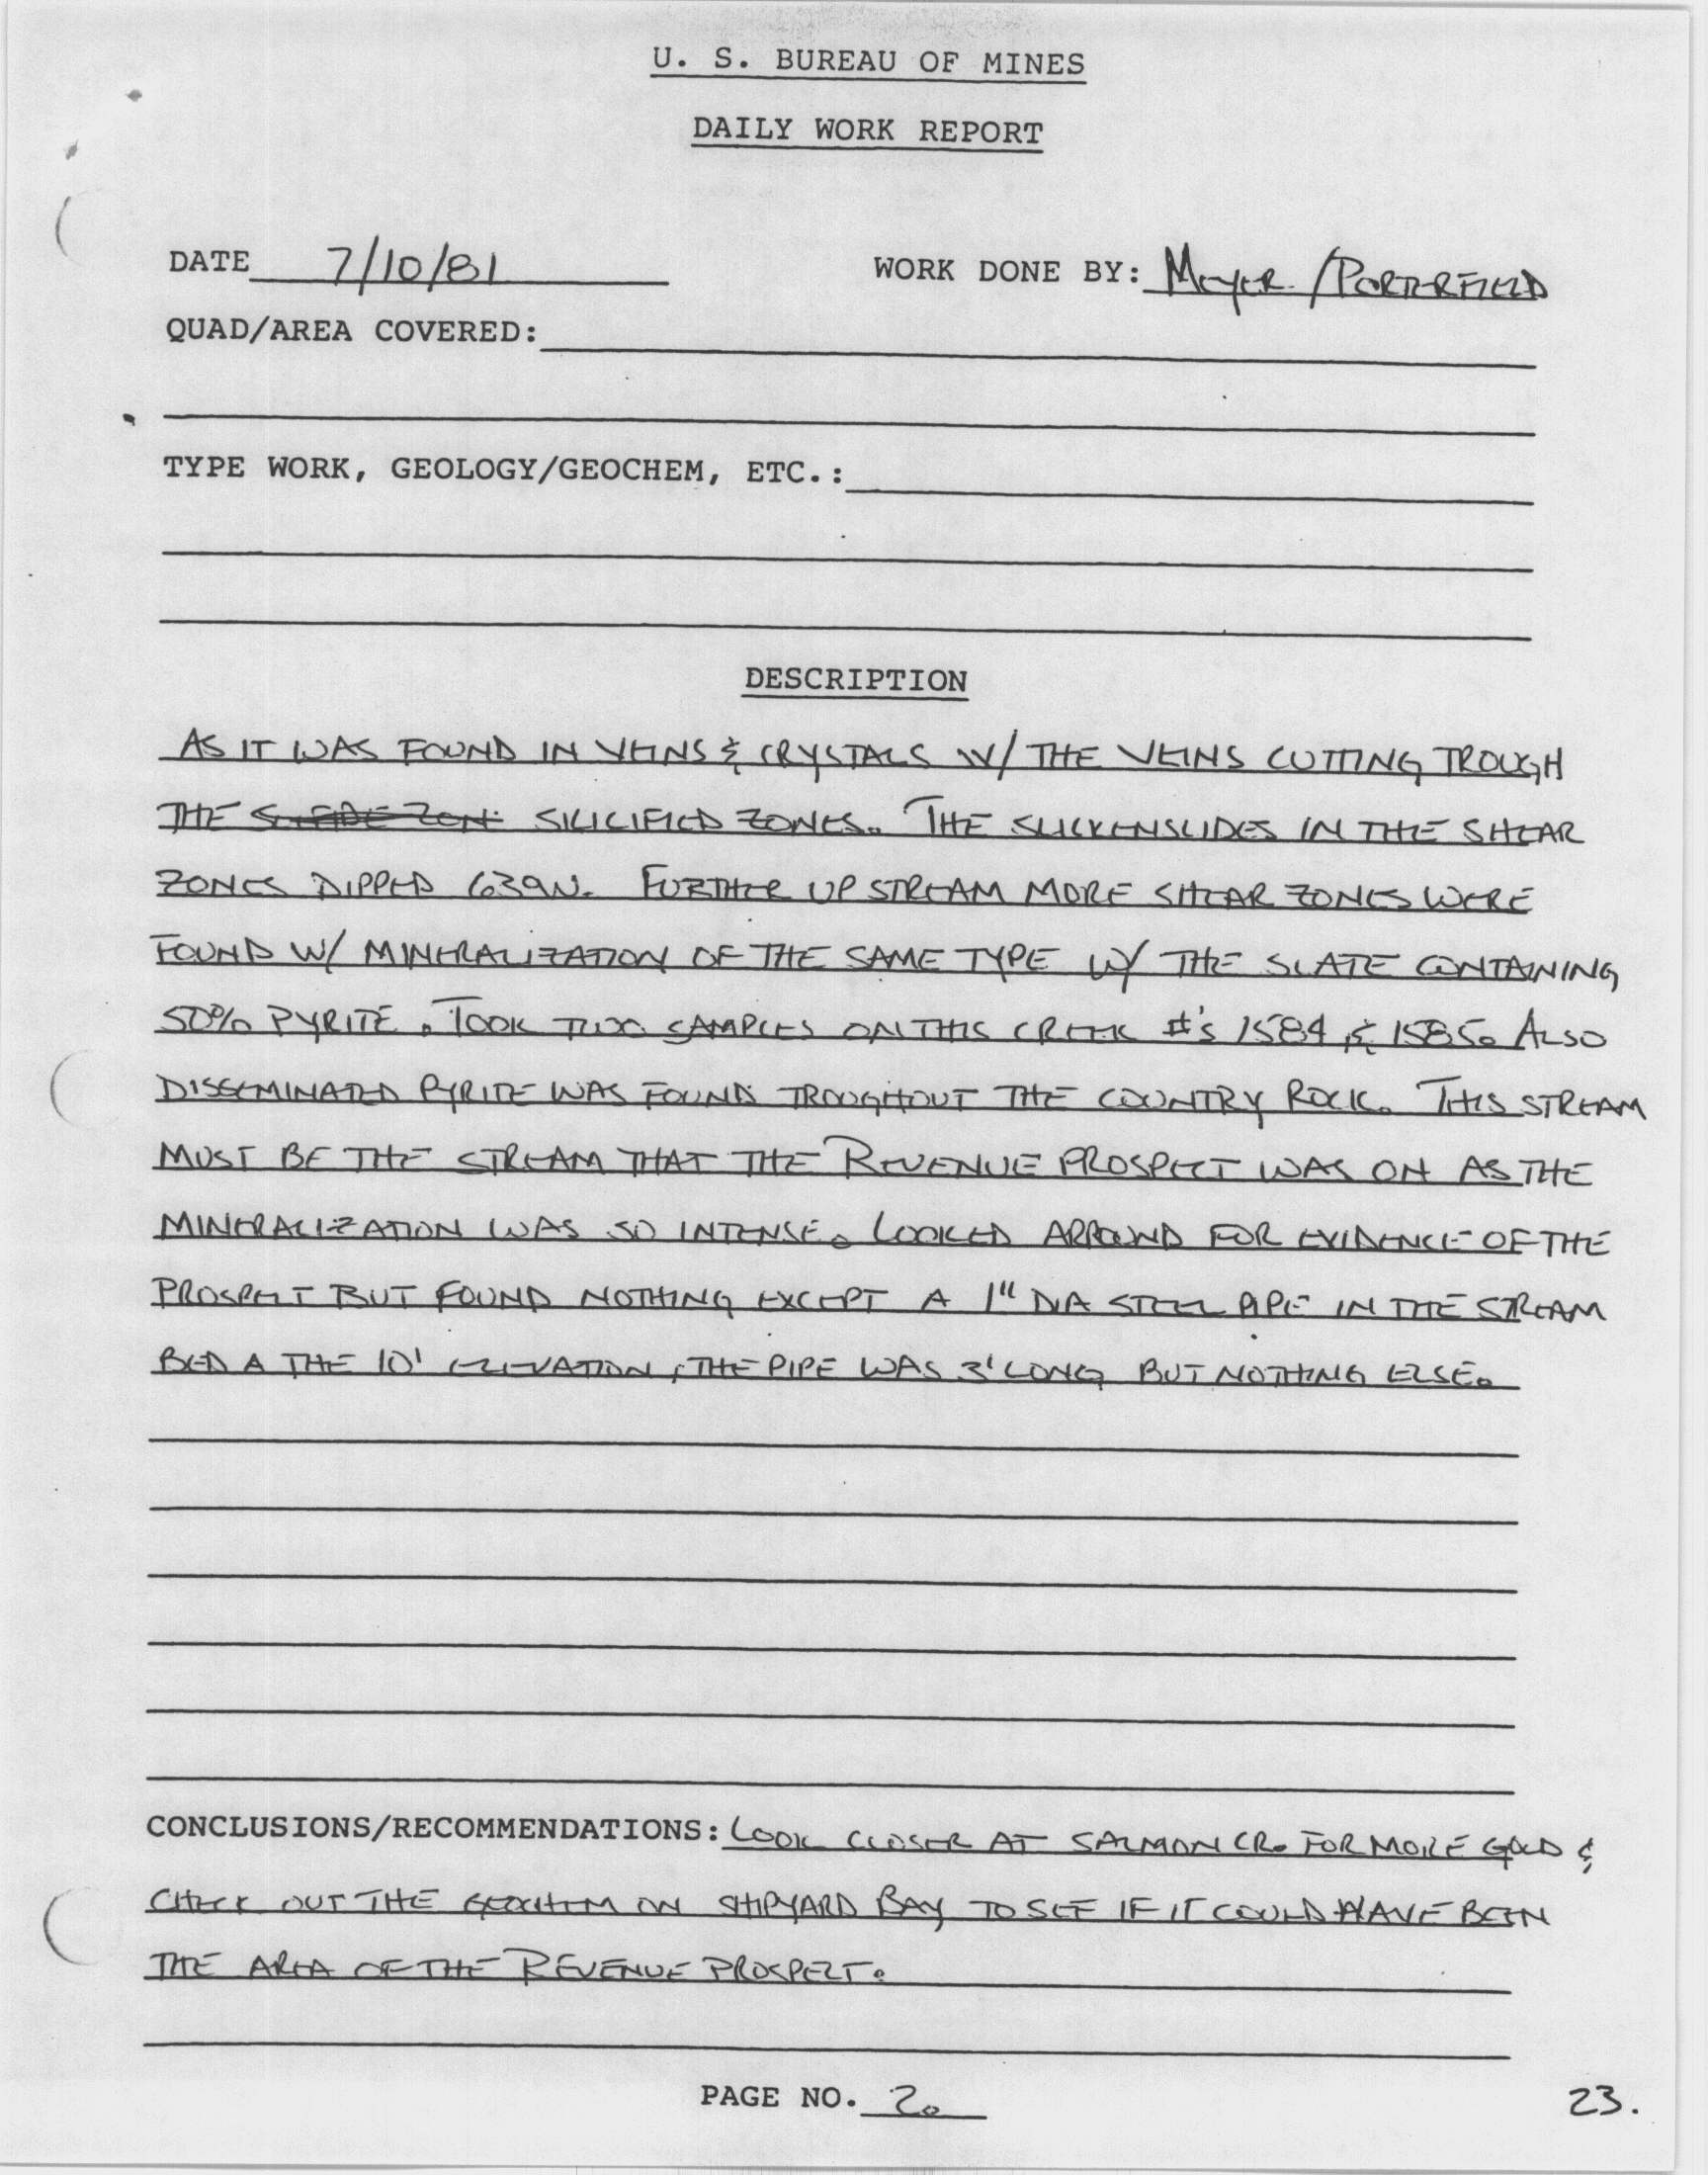 U. S. BUREAU OF MINES
DAILY WORK REPORT
DATE 7/10/81 WORK DONE BY: MEYER / PORTERFIELD
QUAD/AREA COVERED:
TYPE WORK, GEOLOGY/GEOCHEM, ETC.:
DESCRIPTION
AS IT WAS FOUND IN VEINS & CRYSTALS W/ THE VEINS CUTTING TROUGH
THE SILICIFIED ZONES. THE SLICKENSLIDES IN THE SHEAR
ZONES DIPPED 639N. FURTHER UP STREAM MORE SHEAR ZONES WERE
FOUND W/ MINERALIZATION OF THE SAME TYPE W/ THE SLATE CONTAINING
50% PYRITE. TOOK TWO SAMPLES ON THIS CREEK #'S 1584 & 1585. ALSO
DISSEMINATED PYRITE WAS FOUND TROUGHOUT THE COUNTRY ROCK. THIS STREAM
MUST BE THE STREAM THAT THE REVENUE PROSPECT WAS ON AS THE
MINERALIZATION WAS SO INTENSE. LOOKED ARROUND FOR EVIDENCE OF THE
PROSPECT BUT FOUND NOTHING EXCEPT A 1" DIA STEEL PIPE IN THE STREAM
BED A THE 10' ELEVATION, THE PIPE WAS 3' LONG BUT NOTHING ELSE.
CONCLUSIONS/RECOMMENDATIONS: LOOK CLOSER AT SALMON CR. FOR MORE GOLD &
CHECK OUT THE GEOCHEM ON SHIPYARD BAY TO SEE IF IT COULD HAVE BEEN
THE AREA OF THE REVENUE PROSPECT.
PAGE NO. 2.
23.